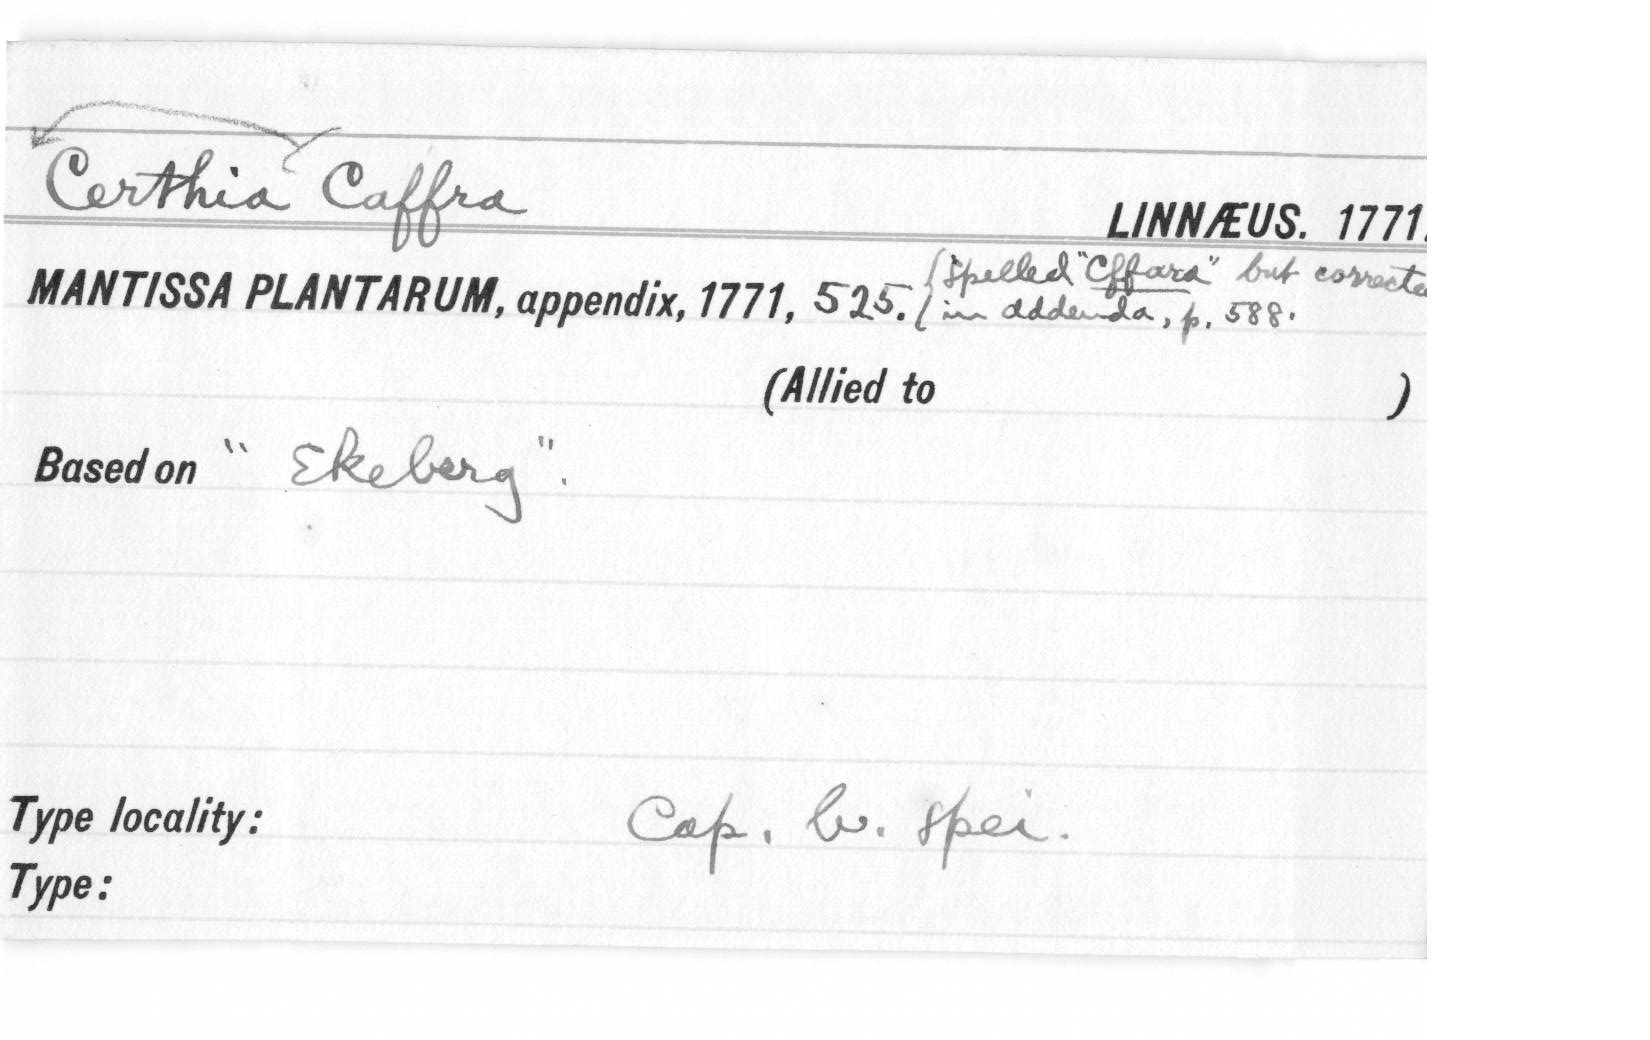 Certhia Caffra
LINNÆUS. 1771.
MANTISSA PLANTARUM, appendix, 1771, 525. {Spelled "Cffara" but correcte
in addenda, p. 588.
(Allied to )
Based on "Ekeberg".
Type locality: Cap. b. Spei.
Type: